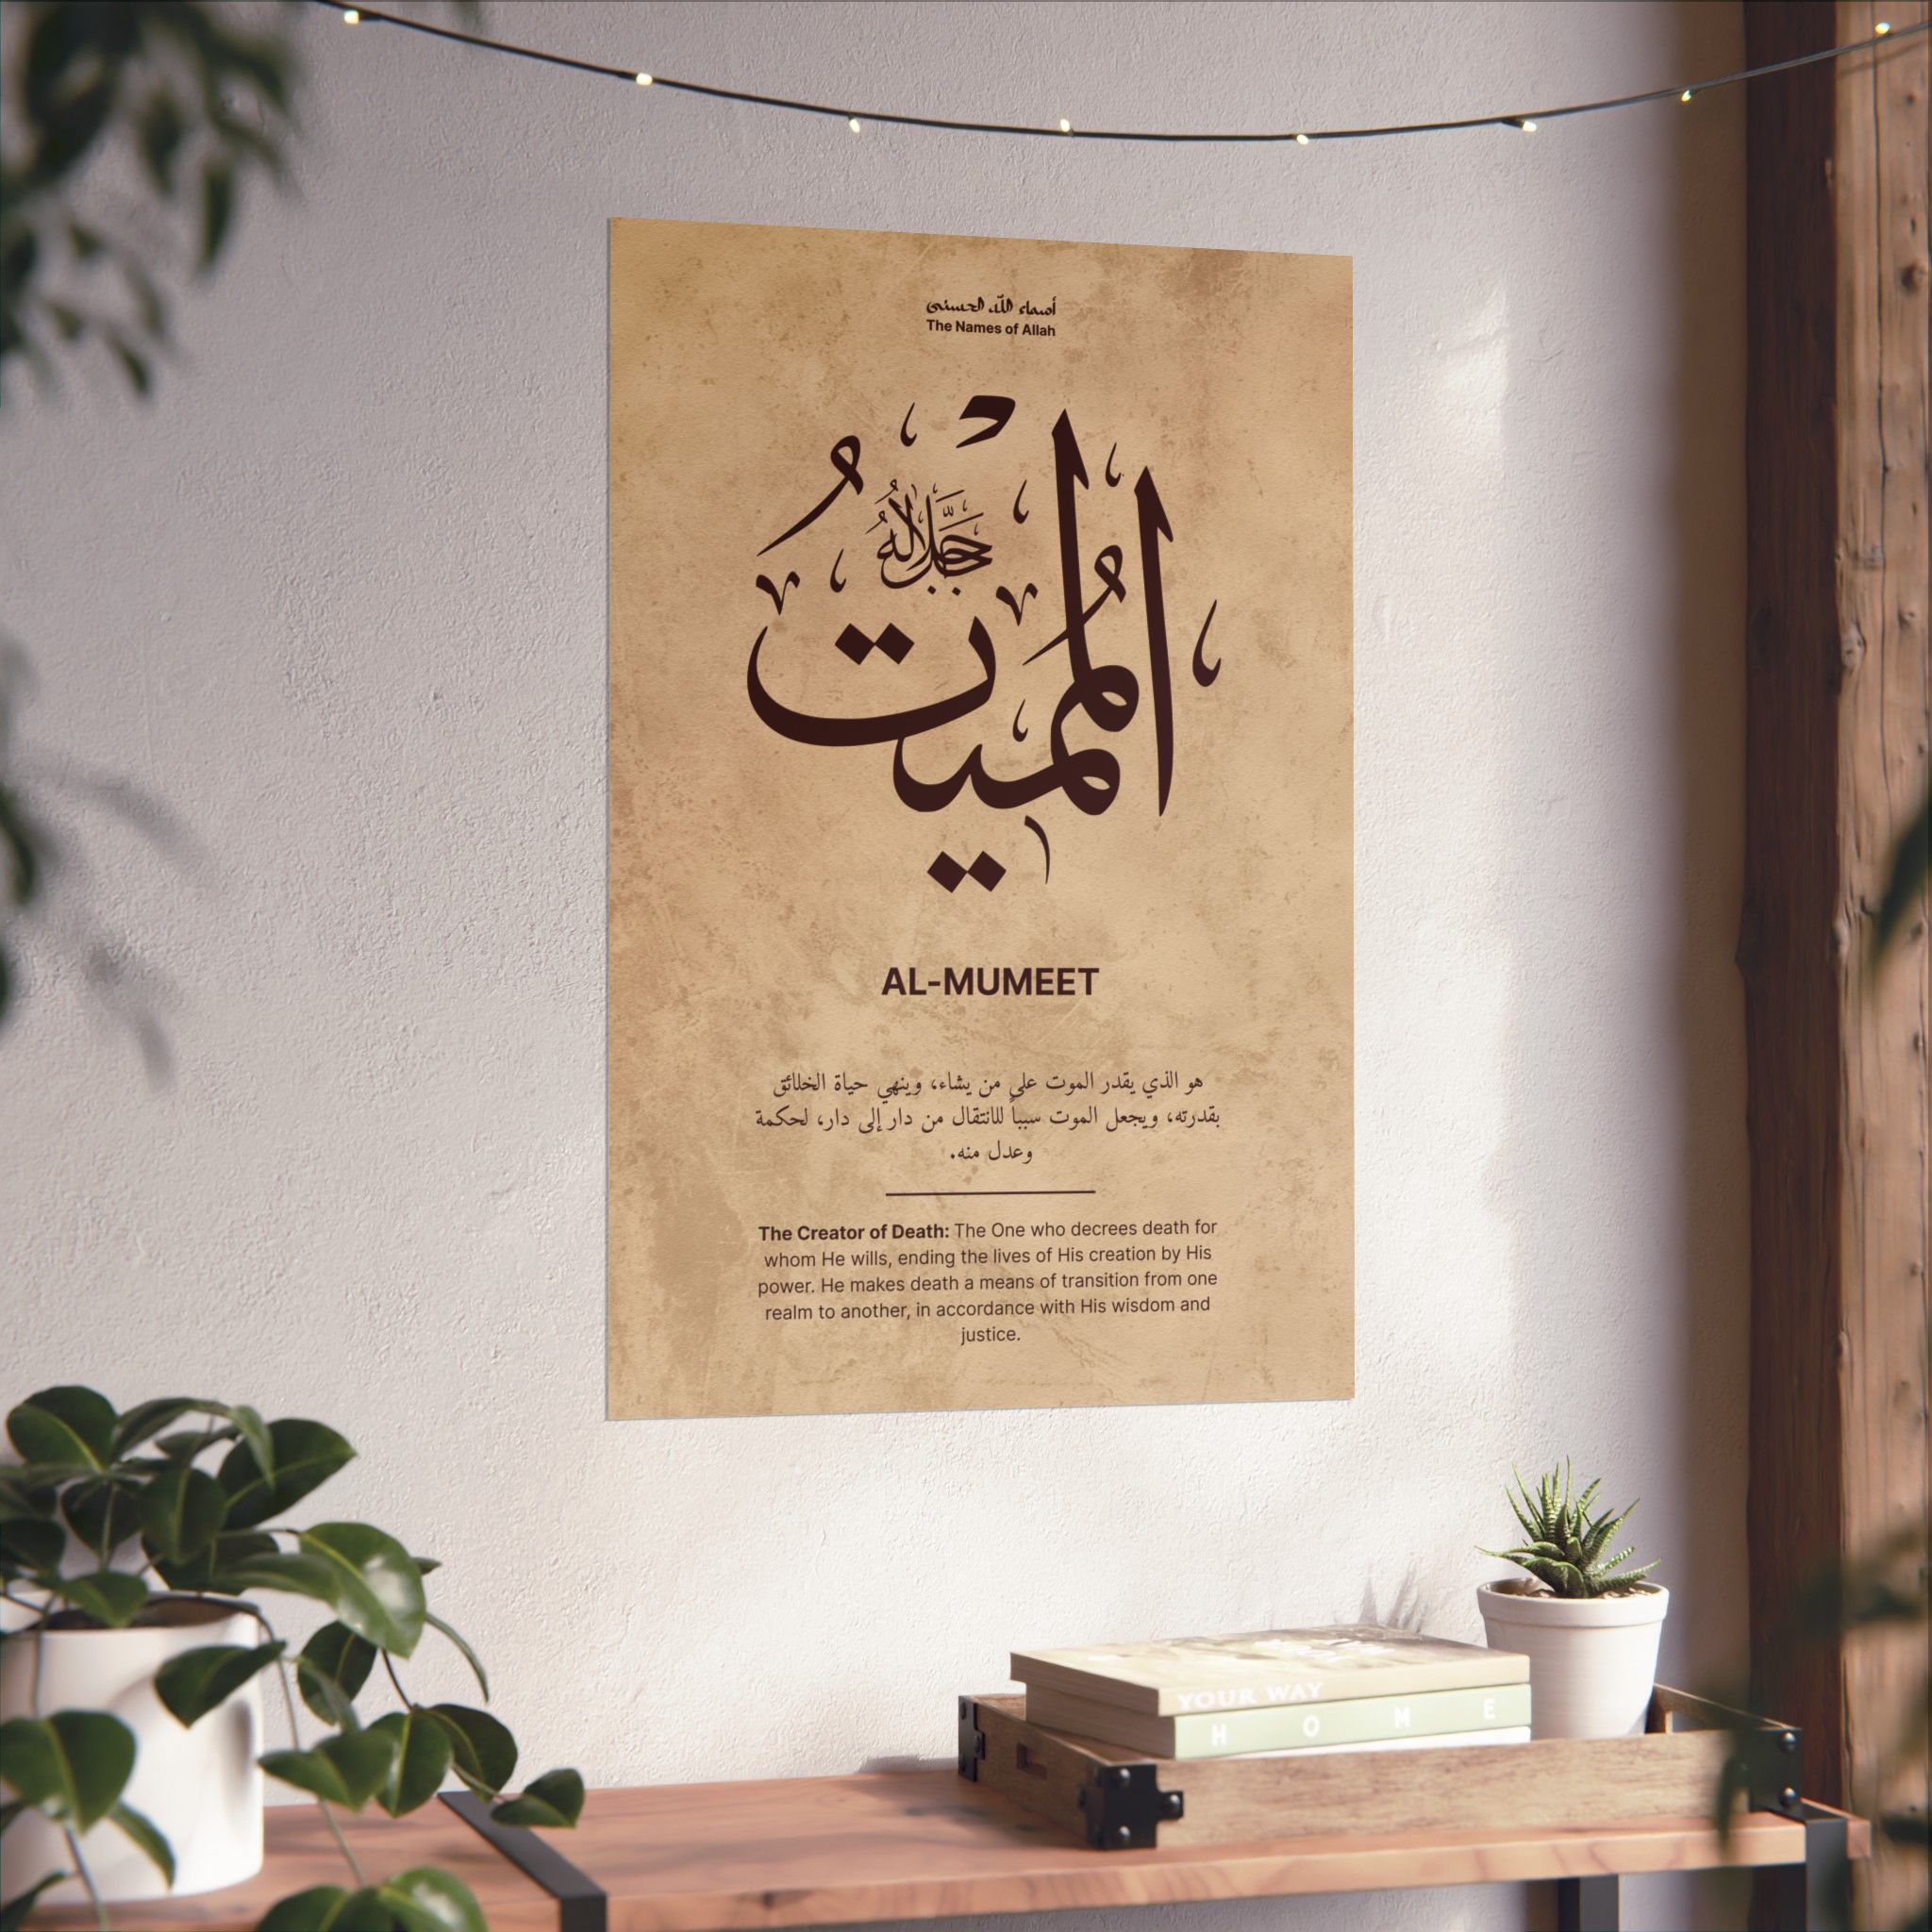 أسماء الله الحسنى
The Names of Allah
المُمِيتُ
جَلَّ جَلَالُهُ
AL-MUMEET
هو الذي يقدر الموت على من يشاء، وينهي حياة الخلائق
بقدرته، ويجعل الموت سبباً للانتقال من دار إلى دار، لحكمة
وعدل منه.
The Creator of Death: The One who decrees death for
whom He wills, ending the lives of His creation by His
power. He makes death a means of transition from one
realm to another, in accordance with His wisdom and
justice.
YOUR WAY
HOME